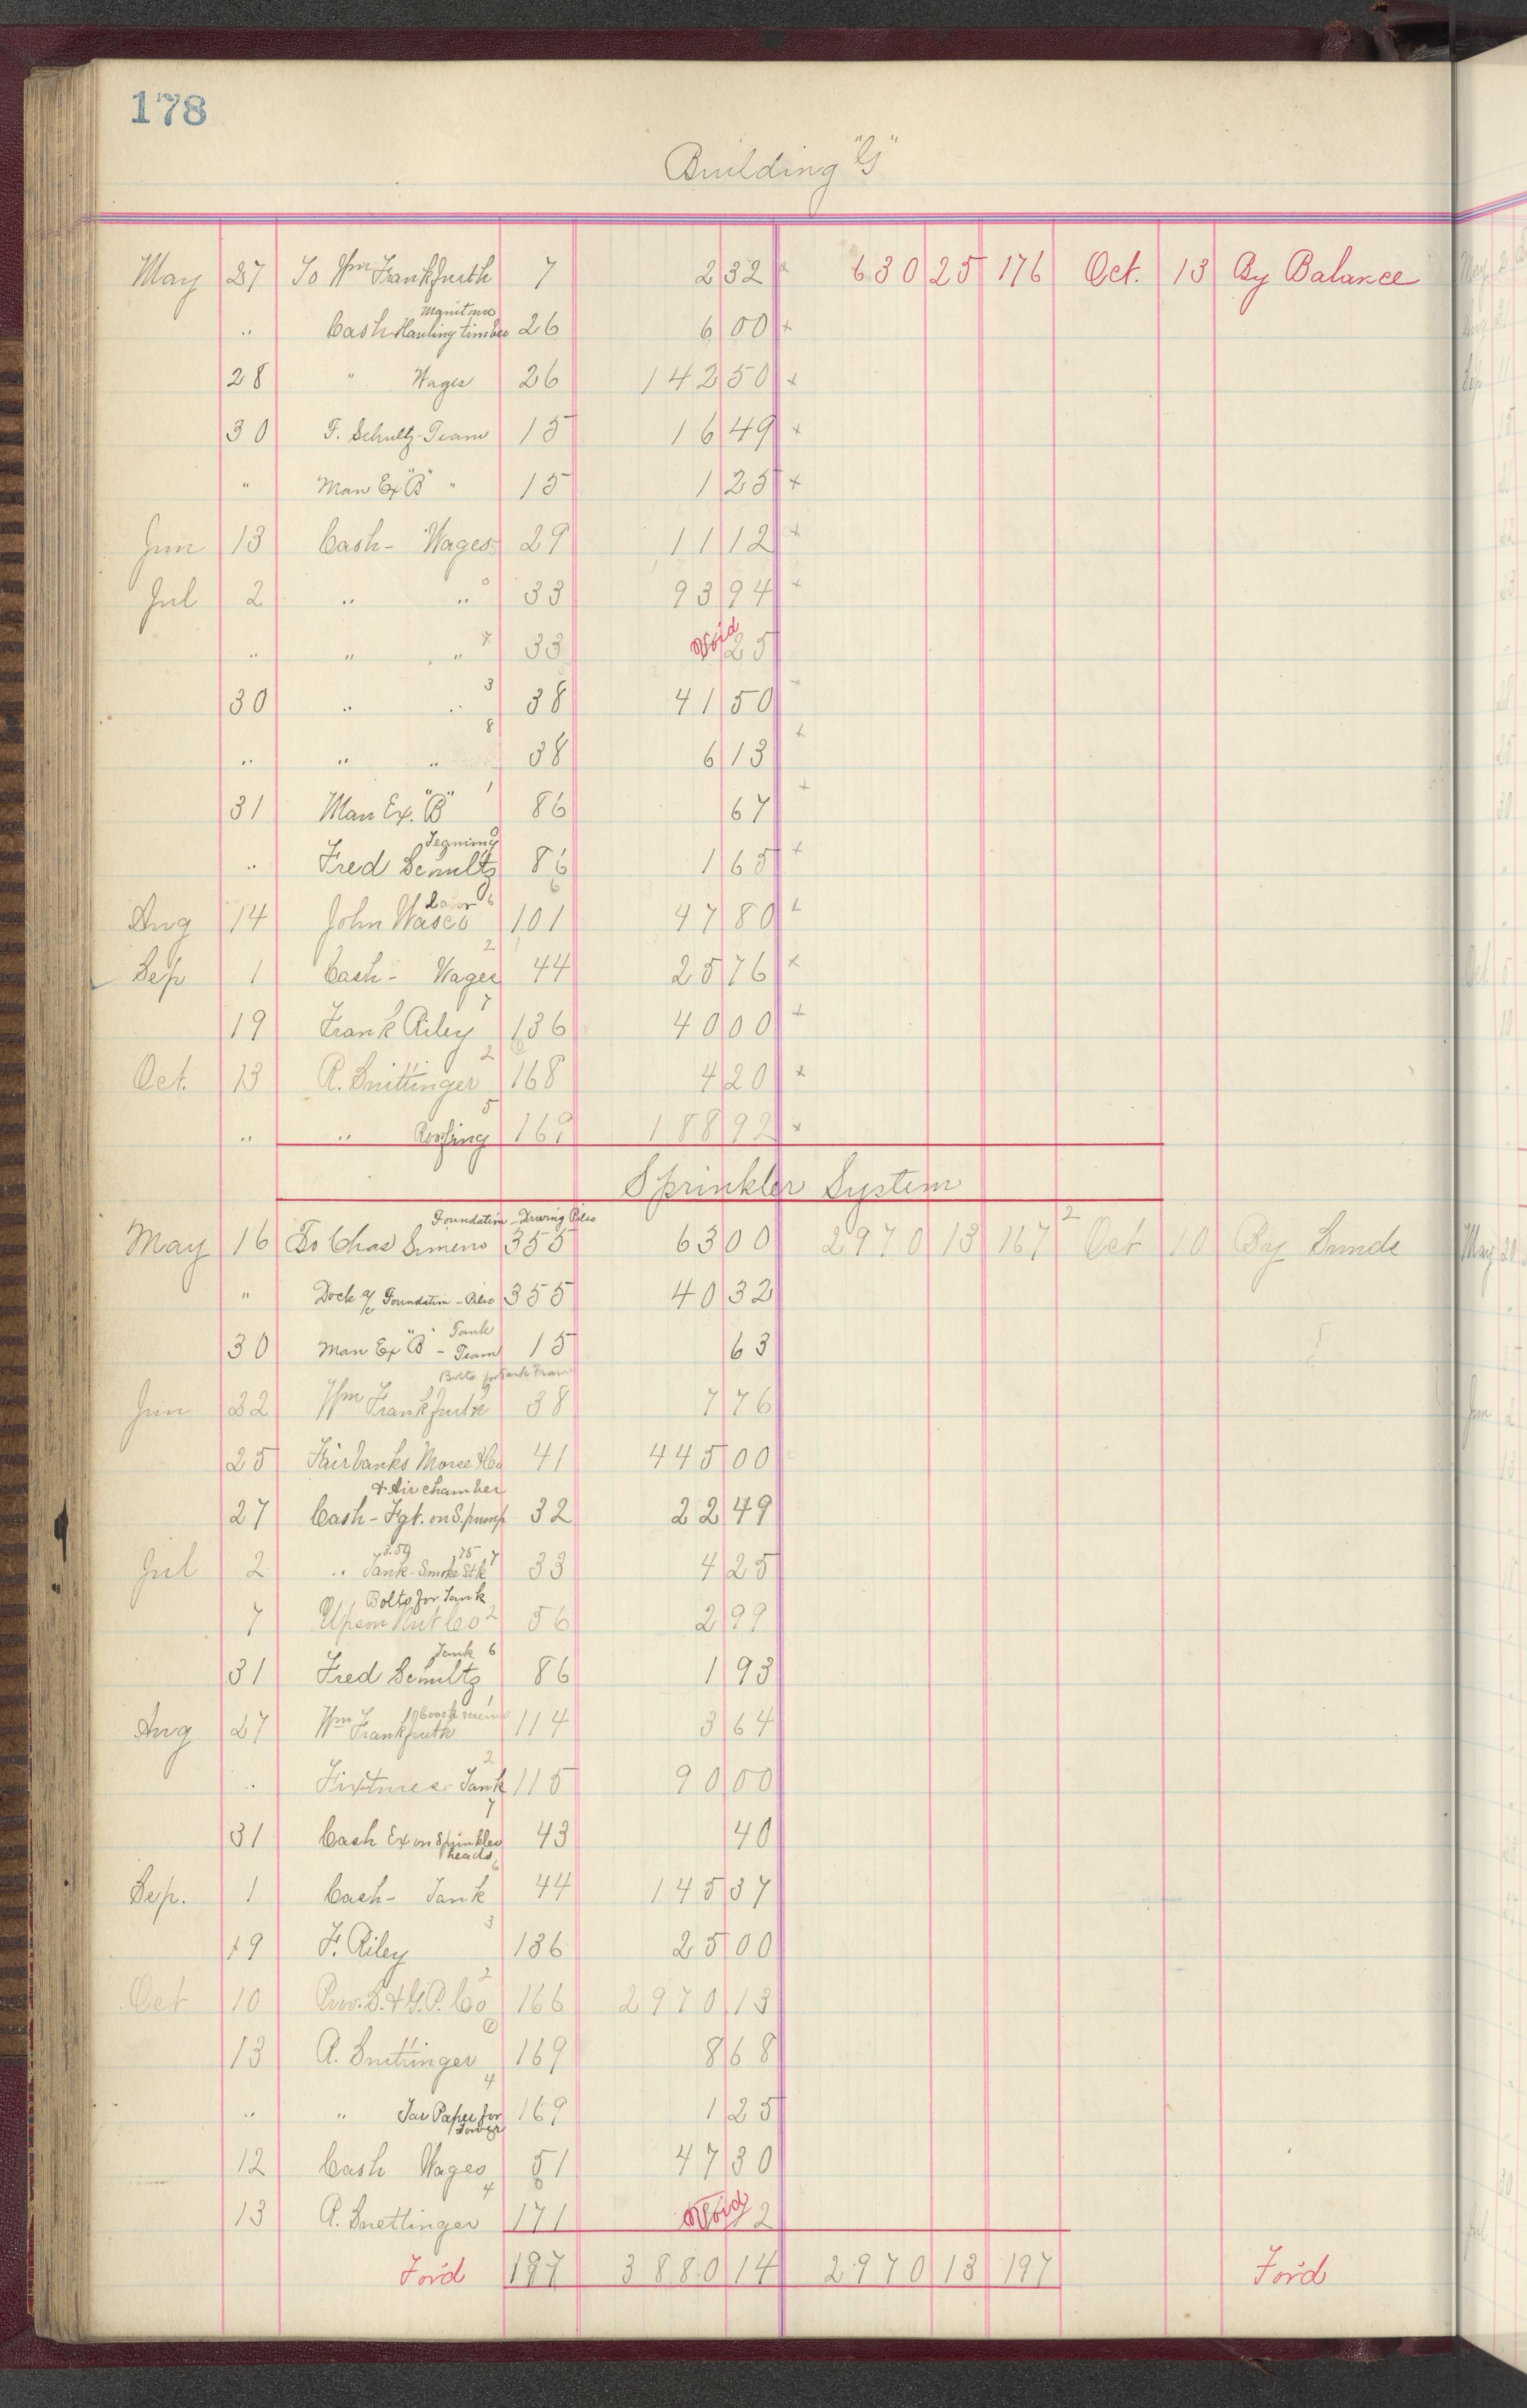 178
Building "G"
May 27 To Wm Frankfurth 7 2 32 x 630 25 176 Oct. 13 By Balance
" Cash Hauling timber 26 6 00 x
28 " Wages 26 142 50 x
30 F. Schultz - Team 15 16 49 x
" Man Ex "B" " 15 1 25 x
Jun 13 Cash - Wages 29 11 12 x
Jul 2 " " 33 93 94 x
" " " 7 33 Void 25
30 " " 3 38 41 50
" " " 8 38 6 13 x
31 Man Ex. "B" 1 86 67 x
Fred Schultz 86 1 65 x
Labor 6
Aug 14 John Wasco 101 47 80 x
Sep 1 Cash - Wages 2 44 25 76 x
19 Frank Riley 7 136 40 00 x
Oct. 13 2 168 4 20 x
" " Roofing 5 169 188 92 x
Sprinkler System
Foundation - Driving Piles
May 16 To Chas 355 63 00 2970 13 167 2 Oct 10 By
" Dock a/c Foundation - Piles 355 40 32
Tank
30 Man Ex "B" - Team 15 63
Bolts for Tank Frame
Jun 22 Wm Frankfurth 38 7 76
25 Fairbanks Morse & Co 41 445 00
& Air chamber
27 Cash - Fgt. on S. pump 32 22 49
3.59 75 7
Jul 2 " Tank - Smoke Stk 33 4 25
Bolts for Tank
7 Upson Nut Co 2 56 2 99
Tank 6
31 Fred Schultz 86 1 93
Aug 27 Wm Frankfurth 114 3 64
" Fixtures - Tank 2 115 90 00
31 Cash Ex on Sprinkler 7 43 40
heads
Sep. 1 Cash - Tank 6 44 145 37
19 F. Riley 3 136 25 00
Oct 10 Co 2 166 2970 13
13 169 8 68
" " Tar Paper for 4 169 1 25
Tower
12 Cash Wages 51 47 30
13 4 171 Void 2
For'd 197 3880 14 2970 13 197 For'd